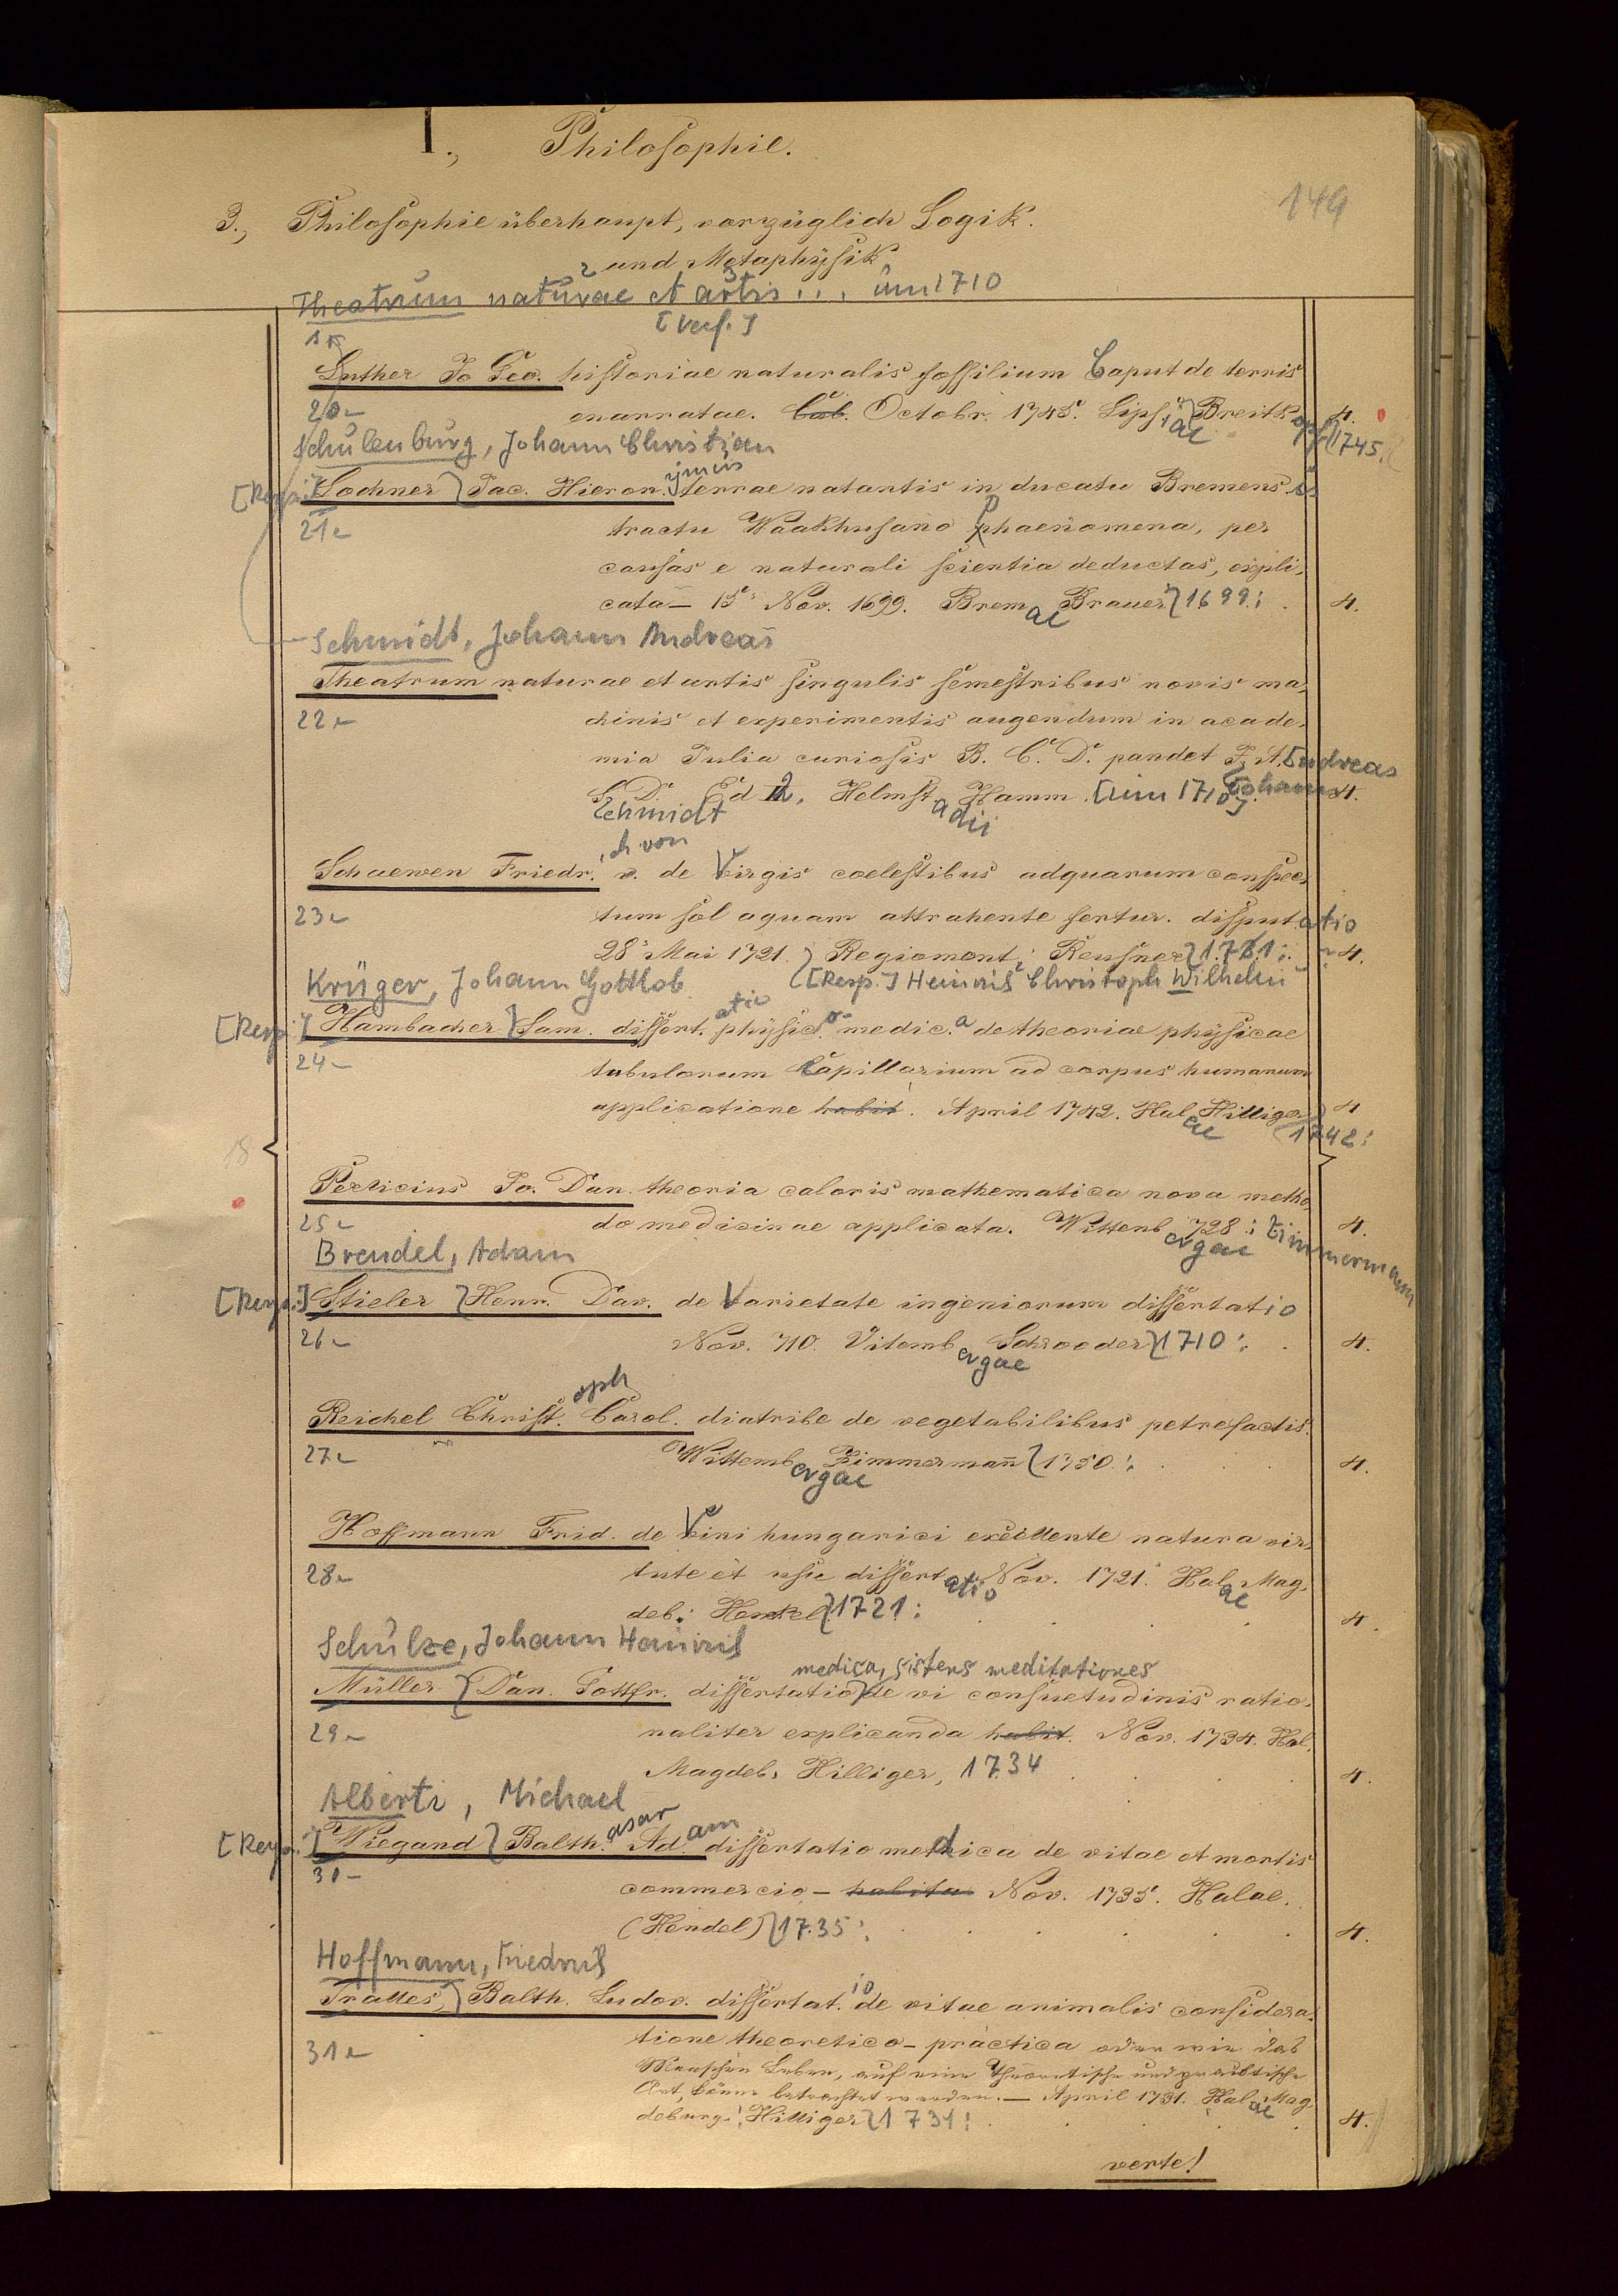 I., Philosophie.
149
3., Philosophie überhaupt, vorzüglich Logik.
und Metaphysik.
Theatrum naturae et artis... um 1710
[Verf.]
Luther Jo Geo. historiae naturalis fossilium Caput de terris
20 enarratae. Cab. Octobr. 1745. Lipsiae Breitkopf 1745. 4.
Schulenburg, Johann Christian
[Resp.] Lochner Jac. Hieronymus terrae natantis in ducatu Bremensis
21 tractu Waakhusano phaenomena, per
causas e naturali scientia deductas, expli-
cata — 15. Nov. 1699. Bremae Brauer 1699. 4.
Schmidt, Johann Andreas
Theatrum naturae et artis singulis semestribus novis ma-
22 chinis et experimentis augendum in acade-
mia Julia curiosis B. C. D. pandet J. A. [Andreas
S. D. Ed 2, Helmst. Hamm. [um 1710] Johann 4.
Schmidt adii
ich von
Schaewen Friedr. v. de Virgis coelestibus ad quarum conspec-
23 tum sol aquam attrahente fertur. disputatio
28 Mai 1721. Regiomont. Reusner 1721. 4.
Krüger, Johann Gottlob [Resp.] Heinrich Christoph Wilhelm
[Resp.] Hambacher Sam. dissertatio physico-medica de theoriae physicae
24 tubulorum Capillarium ad corpus humanum
applicatione habit. April 1742. Halae Hilliger 4
1742.
18
Perlicius Jo. Dan. theoria caloris mathematica nova metho-
25 do medicinae applicata. Wittenbergae 728. Zimmermann 4.
Brendel, Adam
[Resp.] Stieler Henr. Dav. de Varietate ingeniorum dissertatio
26 Nov. 710. Vitembergae Schroeder 1710. 4.
Reichel Christoph Carol. diatribe de vegetabilibus petrefactis.
27 Wittembergae Zimmermañ 1750. 4.
Hoffmann Frid. de Vini hungarici excellente natura vir-
28 tute et usu dissertatio Nov. 1721. Halae Mag-
deb. Henkel 1721. 4.
Schulze, Johann Heinrich
medica, sistens meditationes
Müller Dan. Gottfr. dissertatio de vi consuetudinis ratio-
29 naliter explicanda habit. Nov. 1734. Hal.
Magdeb. Hilliger, 1734 4.
Alberti, Michael
[Resp.] Wiegand Balthasar Adam dissertatio medica de vitae et mortis
30 commercio — habita Nov. 1735. Halae.
(Hendel) 1735. 4.
Hoffmann, Friedrich
Tralles, Balth. Ludov. dissertatio de vitae animalis considera-
31 tione theoretico-practica oder wie das
Menschen Leben, auf eine theoretische und practische
Art, könne betrachtet werden. — April 1731. Halae Mag-
deburg. Hilliger 1731. 4.
verte!